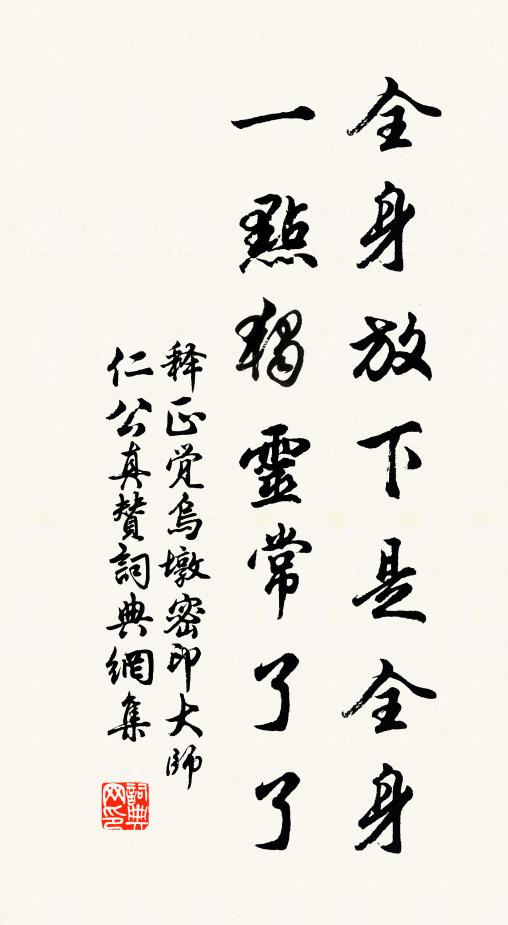 全身放下是全身
一點獨靈常了了
释正觉烏墩密印大師
仁公真賛詞典網集
詞典网印